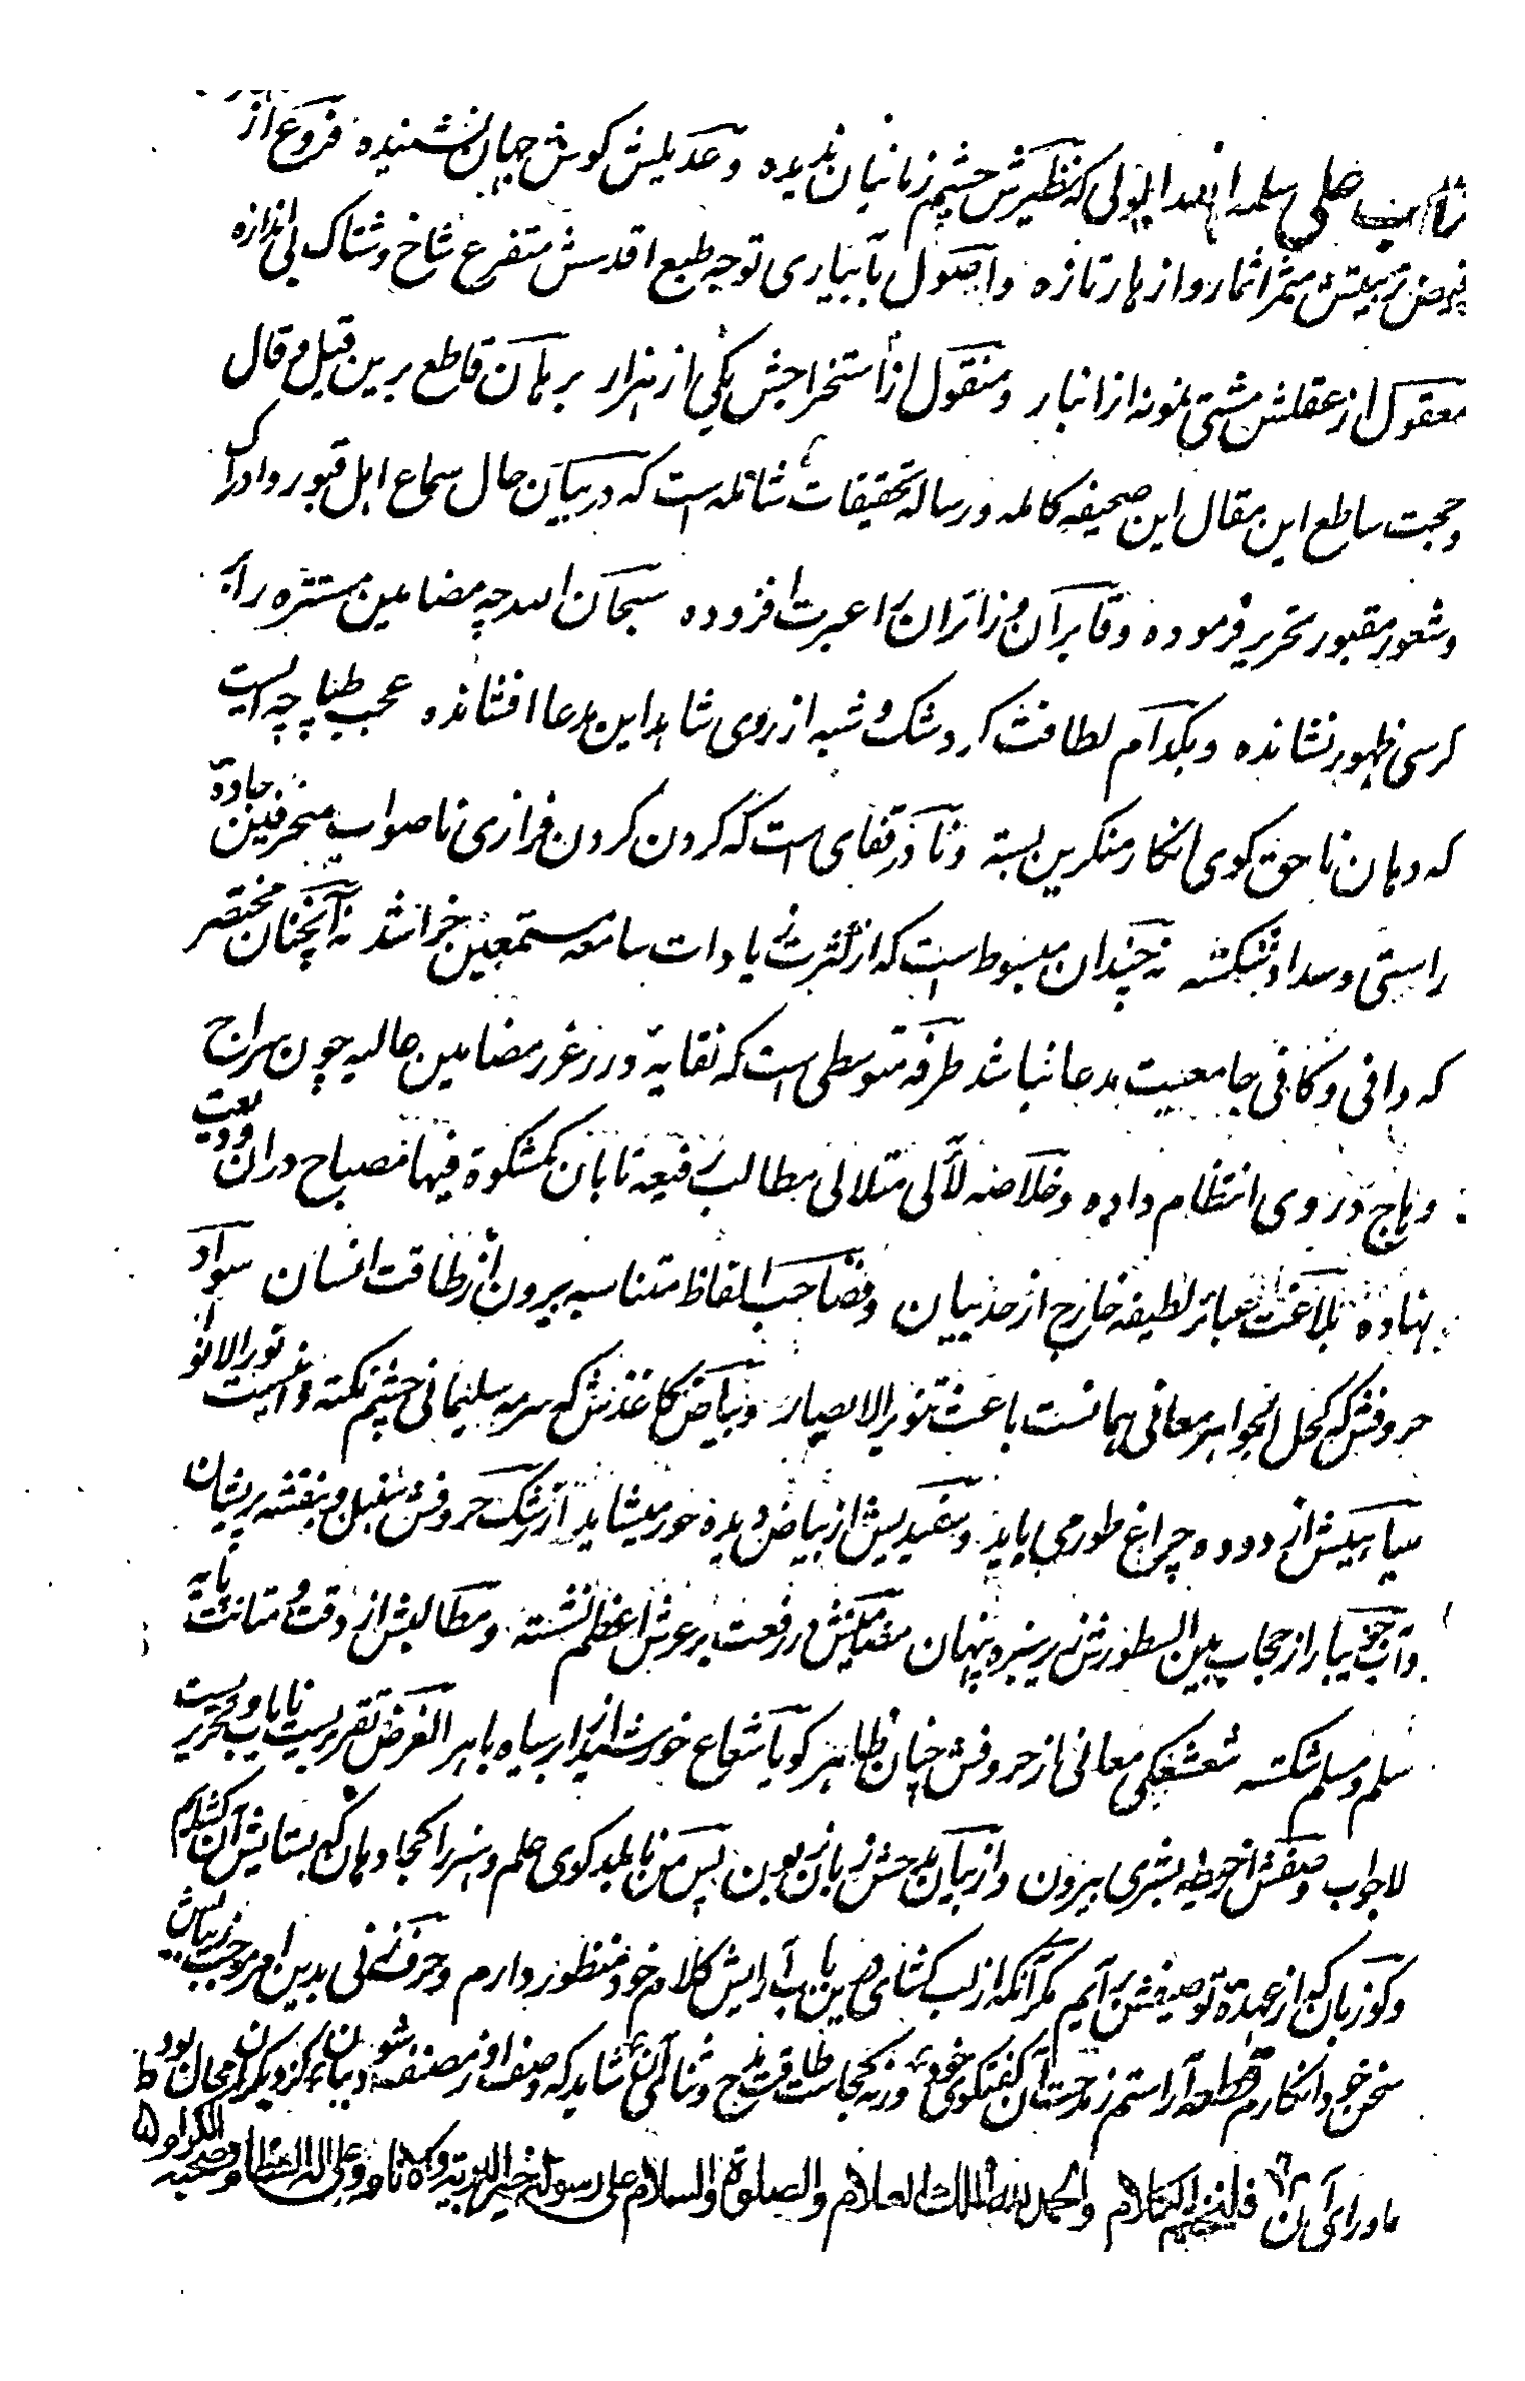 صلی سلمه الله الولی که نظیرش چشم زمانیان ندیده وعدیلش کوش جهان نشنیده فروع از
فیض تربیتش مثمر اثمار وازهار تازه واصول بآبیاری توجه طبع اقدسش متفرع شاخ وشتاک بی اندازه
معقول از عقلش مشتی نمونه از انبار ومنقول از استخراجش یکی از هزار برهان قاطع برین قیل و قال
وحجت ساطع این مقال این صحیفه کامله ورساله تحقیقات شامله است که در بیان حال سماع اهل قبور وادراک
وشعور مقبور تحریر فرموده وقابران و زائران را عبرت افزوده سبحان الله چه مضامین مستتره را بر
کرسی ظهور نشانده وبکدام لطافت کرد شک و شبه از روی شاهد این مدعا افشانده عجب طپاچه ایست
که دهان ناحق کوی انکار منکرین بسته ونادر قفای است که کردن کردن فرازی ناصواب منحرفین جادهٔ
راستی وسداد شکسته نه چندان مبسوط است که از کثرت زیادات سامعه مستمعین خراشد نه آنچنان مختصر
که وافی و کافی جامعیت مدعا نباشد طرفه متوسطی است که نقایهٔ درر غرر مضامین عالیه چون سراج
وهاج در وی انتظام داده وخلاصه لآلی متلالی مطالب رفیعه تابان کمشکوة فیها مصباح دران ودیعت
نهاده بلاغت عبائر لطیفه خارج از حد بیان وفصاحت الفاظ متناسبه بیرون از طاقت انسان سواد
حروفش که کحل الجواهر معانی همانست باعث تنویر الابصار وبیاض کاغذش که سرمه سلیمانی چشم نکته دانیست نور الانوار
سیاهیش از دوده چراغ طور می باید وسفیدیش از بیاض دیده حور میشاید از رشک حروفش سنبل و بنفشه پریشان
وآب جویبار از حجاب بین السطورش زیر سبزه پنهان مضامینش در رفعت بر عرش اعظم نشسته ومطالبش از دقت و متانت پایهٔ
سلم ومسلم شکسته شعشعکی معانی از حروفش چنان ظاهر کویا شعاع خورشید از ابر سیاه باهر الغرض تقریریست نایاب وتحریریست
لاجواب وصفش از حیطه بشری بیرون واز بیان مدحش زبان زبون پس من نابلد کوی علم وهنر را کجا دهان که بستایش آن کشایم
وکو زبان که از عهدهٔ توصیفش برآیم مکر آنکه از لب کشای درین باب آرایش کلام خود منظور دارم وحرف زنی بدین امر موجب زیبایش
سخن خود انکارم قطعه آراستم ز مدحت آن کفتکوی خود ورنه کجاست طاقت مدح وثنای آن شاید که وصف او ز مصنف شود بیان کز دیکران محال بود
ماورای آن فلنختم الکلام والحمد لله الملک العلام والصلوة والسلام علی رسوله خیر البریة وعلی اله العظام وصحبه الکرام